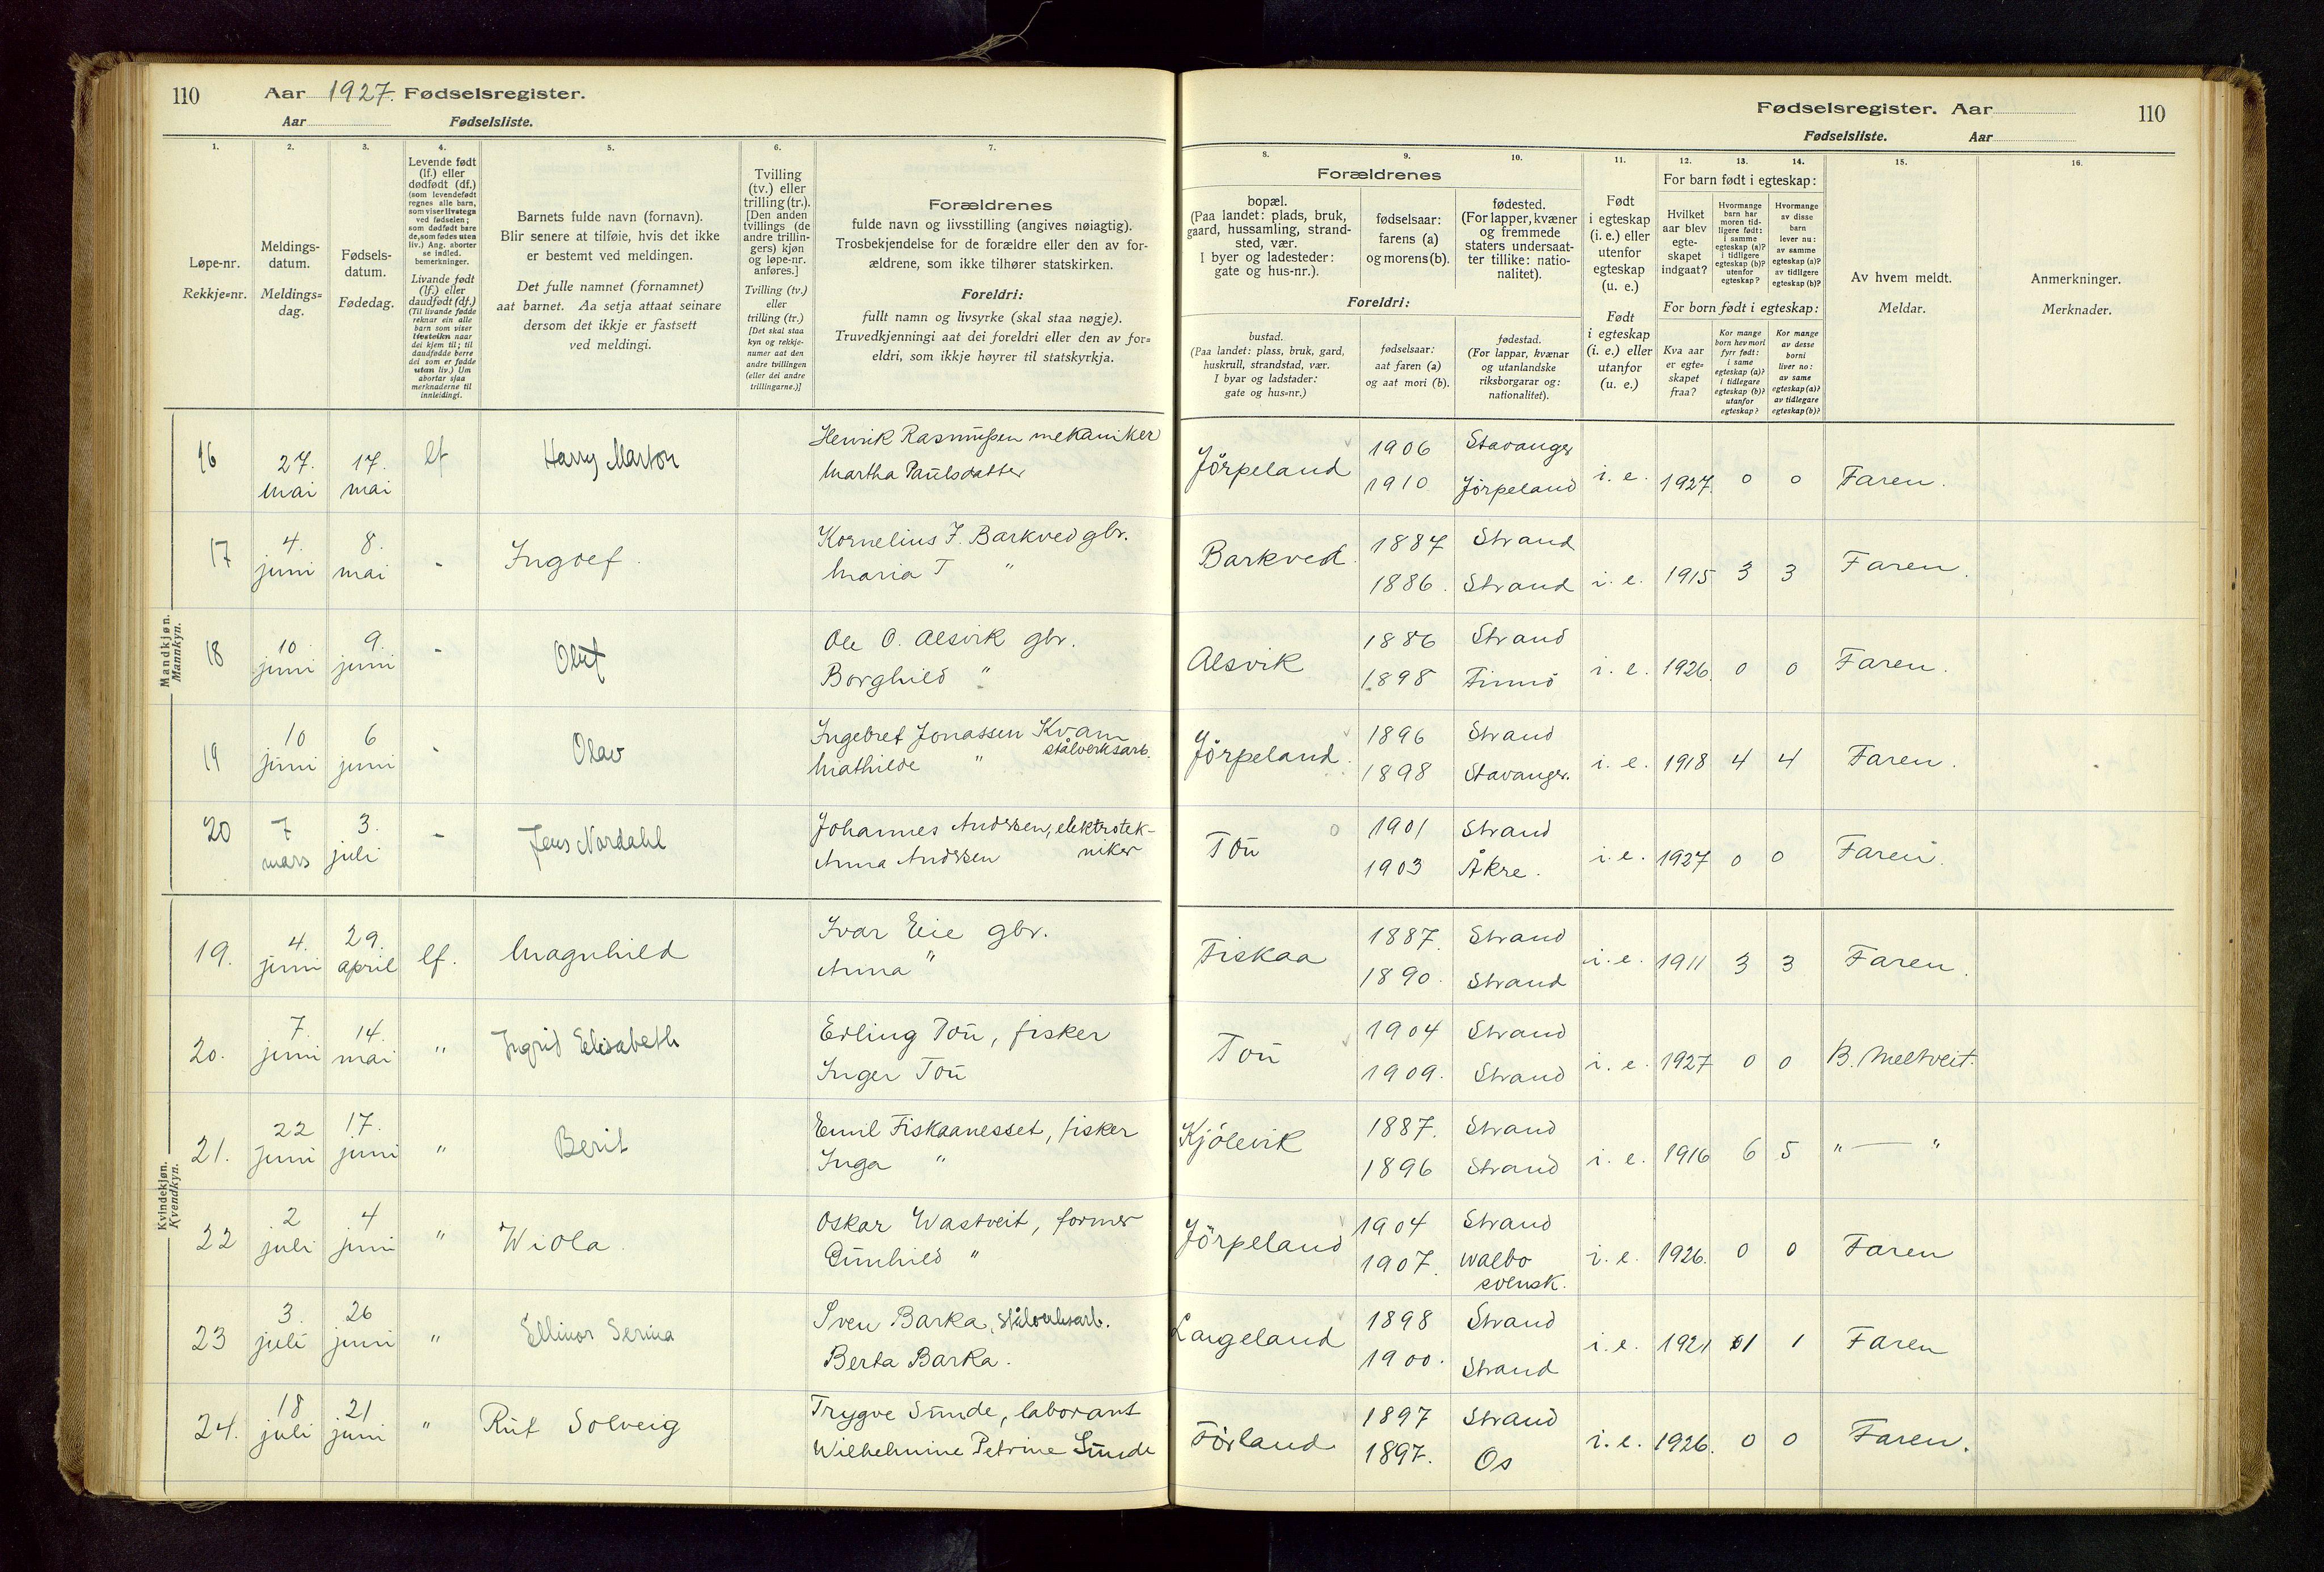 110 Aar 1927. Fødselsregister.
Aar Fødselsliste.
Fødselsregister. Aar 110
Fødselsliste. Aar
1. 2. 3. 4. 5. 6. 7.
Løpe-nr.
Rekkje=nr.
Meldings-
datum.
Meldings=
dag.
Fødsels-
datum.
Fødedag.
Levende født
(lf.) eller
dødfødt (df.)
(som levendefødt
regnes alle barn,
som viser livstegn
ved fødselen;
som dødfødt bare
de, som fødes uten
liv.) Ang. aborter
se indled.
bemerkninger.
Livande født
(lf.) eller
daudfødt (df.)
(Til livande fødde
reknar ein alle
barn som viser
livsteikn naar
dei kjem til; til
daudfødde berre
dei som er fødde
utan liv.) Um
abortar sjaa
merknaderne til
innleidingi.
Barnets fulde navn (fornavn).
Blir senere at tilføie, hvis det ikke
er bestemt ved meldingen.
Det fulle namnet (fornamnet)
aat barnet. Aa setja attaat seinare
dersom det ikkje er fastsett
ved meldingi.
Tvilling
(tv.) eller
trilling (tr.).
[Den anden
tvillings (de
andre trillin-
gers) kjøn
og løpe-nr.
anføres.]
Tvilling (tv.)
eller
trilling (tr.)
[Det skal staa
kyn og rekkje-
numer aat den
andre tvillingen
(eller dei andre
trillingarne.)]
Forældrenes
fulde navn og livsstilling (angives nøiagtig).
Trosbekjendelse for de forældre eller den av for-
ældrene, som ikke tilhører statskirken.
Foreldri:
fullt namn og livsyrke (skal staa nøgje).
Truvedkjenningi aat dei foreldri eller den av for=
eldri, som ikkje høyrer til statskyrkja.
8. 9. 10. 11. 12. 13. 14. 15. 16.
Forældrenes
bopæl.
(Paa landet: plads, bruk,
gaard, hussamling, strand-
sted, vær.
I byer og ladesteder:
gate og hus-nr.).
fødselsaar:
farens (a)
og morens (b).
fødested.
(For lapper, kvæner
og fremmede
staters undersaat-
ter tillike: natio-
nalitet).
Foreldri:
bustad.
(Paa landet: plass, bruk, gard,
huskrull, strandstad, vær.
I byar og ladstader:
gate og hus=nr.)
fødselsaar:
aat faren (a)
og aat mori (b).
fødestad.
(For lappar, kvænar
og utanlandske
riksborgarar og:
nationalitet).
Født
i egteskap
(i. e.) eller
utenfor
egteskap
(u. e.)
Født
i egteskap
(i. e.) eller
utanfor
(u. e.)
For barn født i egteskap:
Hvilket
aar blev
egte-
skapet
indgaat?
Hvormange
barn har
moren tid-
ligere født:
i samme
egteskap (a)?
i tidligere
egteskap (b)?
utenfor
egteskap?
Hvormange
av disse
barn
lever nu:
av samme
egteskap (a)?
av tidligere
egteskap (b)?
For born født i egteskap:
Kva aar
er egte=
skapet
fraa?
Kor mange
born hev mori
fyrr født:
i same
egteskap (a)?
i tidlegare
egteskap (b)?
utanfor
egteskap?
Kor mange
av desse
borni
liver no:
av same
egteskap (a)?
av tidlegare
egteskap (b)?
Av hvem meldt.
Meldar.
Anmerkninger.
Merknader.
Mandkjøn.
Mannkyn.
16 27. mai 17. mai lf Harry Marton Henrik Rasmussen mekaniker Jørpeland 1906 Stavanger i. e. 1927. 0 0 Faren.
Martha Paulsdatter 1910 Jørpeland
17 4. juni 8. mai - Ingolf. Kornelius J. Barkved gbr. Barkved. 1887 Strand i. e. 1915 3 3 Faren.
Maria T " 1886. Strand
18 10. juni 9. juni - Oluf Ole O. Alsvik gbr. Alsvik 1886 Strand i. e. 1926. 0 0 Faren.
Borghild " 1898 Finnö
19 10 juni 6 juni - Olav Ingebret Jonassen Kvam stålverksarb. Jørpeland. 1896 Strand i. e. 1918 4 4 Faren.
Mathilde " 1898 Stavanger.
20 7 mars 3. juli - Jens Nordahl Johannes Andersen, elektrotek- Tou 1901 Strand i. e. 1927 0 0 Faren.
Anna Andersen niker 1903 Åkre.
Kvindekjøn.
Kvendkyn.
19. 4. juni 29. april lf. Magnhild Ivar Eie gbr. Fiskaa 1887. Strand i. e. 1911 3 3 Faren.
Anna " 1890. Strand
20. 7. juni 14. mai " Ingrid Elisabeth Erling Tou, fisker Tou 1904 Strand i. e. 1927 0 0 B. Meltveit.
Inger Tou 1909. Strand
21. 22 juni 17. juni " Berit Emil Fiskaanesset, fisker Kjölevik 1887. Strand i. e. 1916 6 5 " — "
Inga " 1896 Strand
22 2 juli 4 juni " Wiola. Oskar Wastveit, former Jørpeland 1904 Strand i. e. 1926. 0 0 Faren
Gunhild " 1907. Walbo svensk.
23 3. juli 26 juni " Ellinor Serina Sven Barka, stålverksarb. Langeland 1898 Strand i. e. 1921 1 1 Faren
Berta Barka. 1900. Strand
24. 18 juli 21 juni " Rut Solveig Trygve Sunde, laborant Förland 1897 Strand i. e. 1926. 0 0 Faren.
Wilhelmine Petrine Sunde 1897. Os